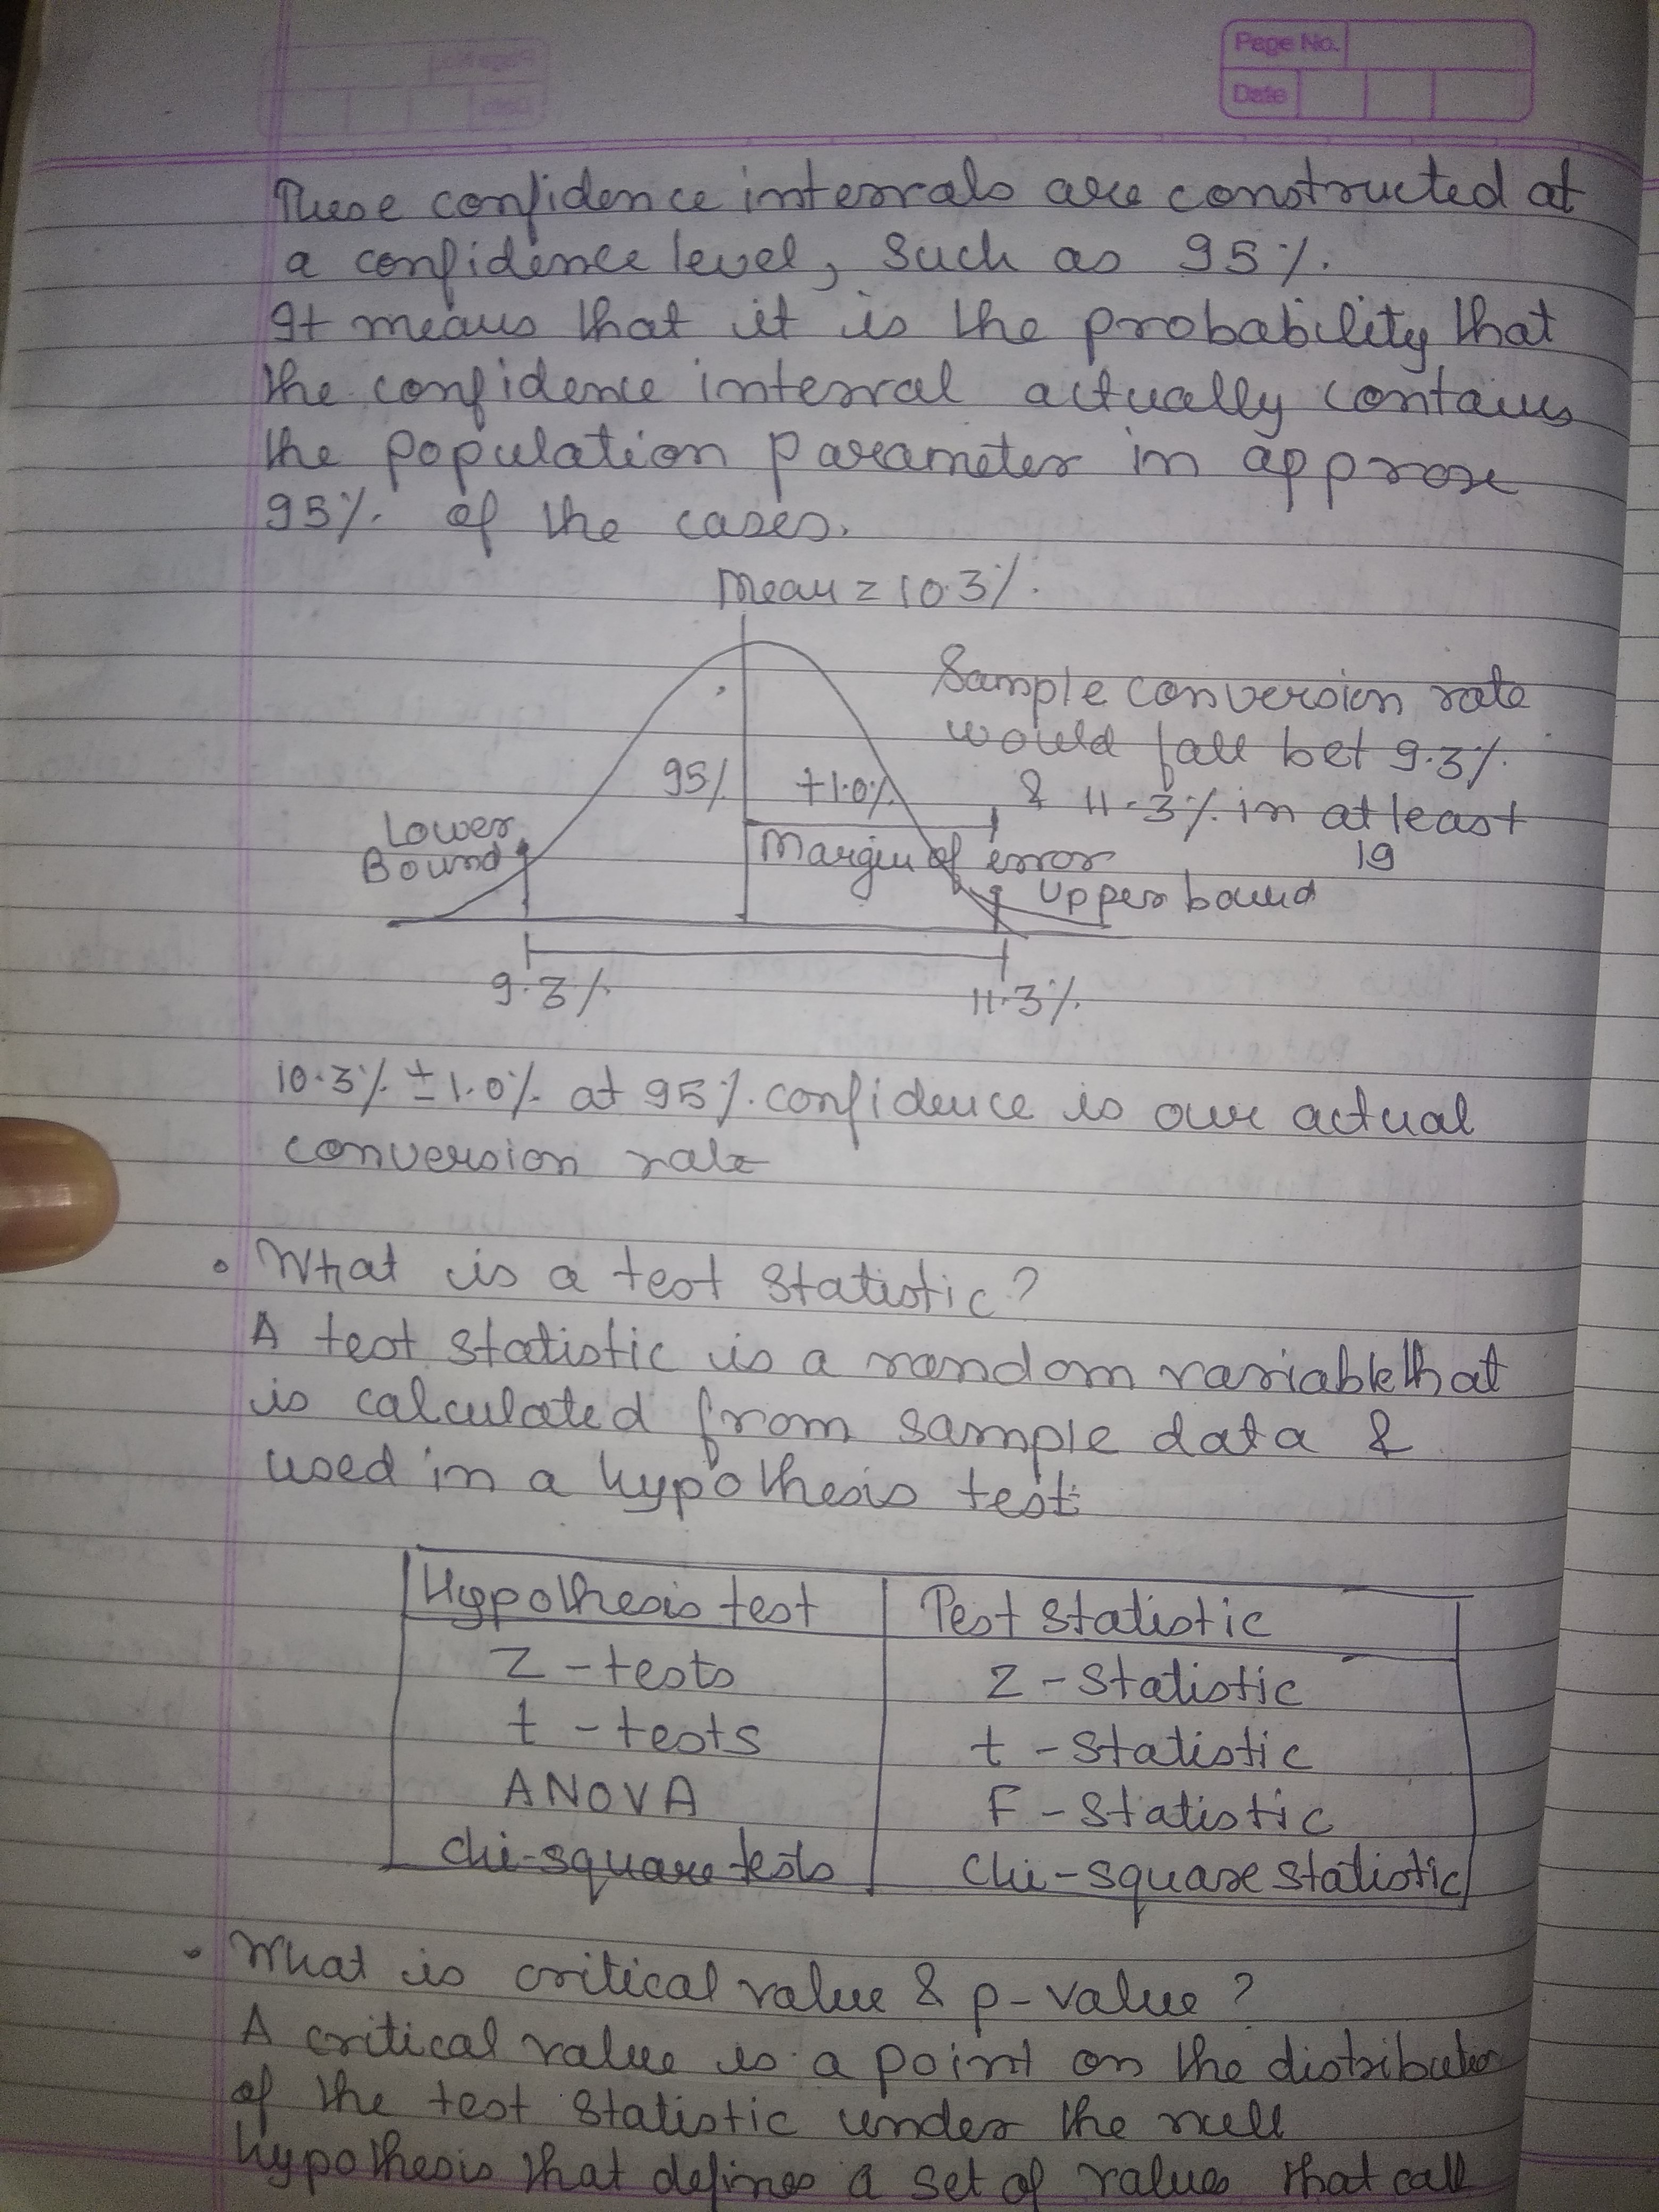 Page No.
Date
These confidence intervals are constructed at
a confidence level, such as 95%.
It means that it is the probability that
the confidence interval actually contains
the population parameter in approx
95% of the cases.
Mean = 10.3%.
Sample conversion rate
would fall bet 9.3%.
& 11.3% in at least
19
95%
+1.0%
Lower
Bound
Margin of error
Upper bound
9.3%
11.3%
10.3% ±1.0% at 95% confidence is our actual
conversion rate
• What is a test statistic?
A test statistic is a random variable that
is calculated from sample data &
used in a hypothesis test.
Hypothesis test Test statistic
Z - tests Z - statistic
t - tests t - statistic
ANOVA F - statistic
Chi-square tests Chi-square statistic
• What is critical value & p-value?
A critical value is a point on the distribution
of the test statistic under the null
hypothesis that defines a set of values that call